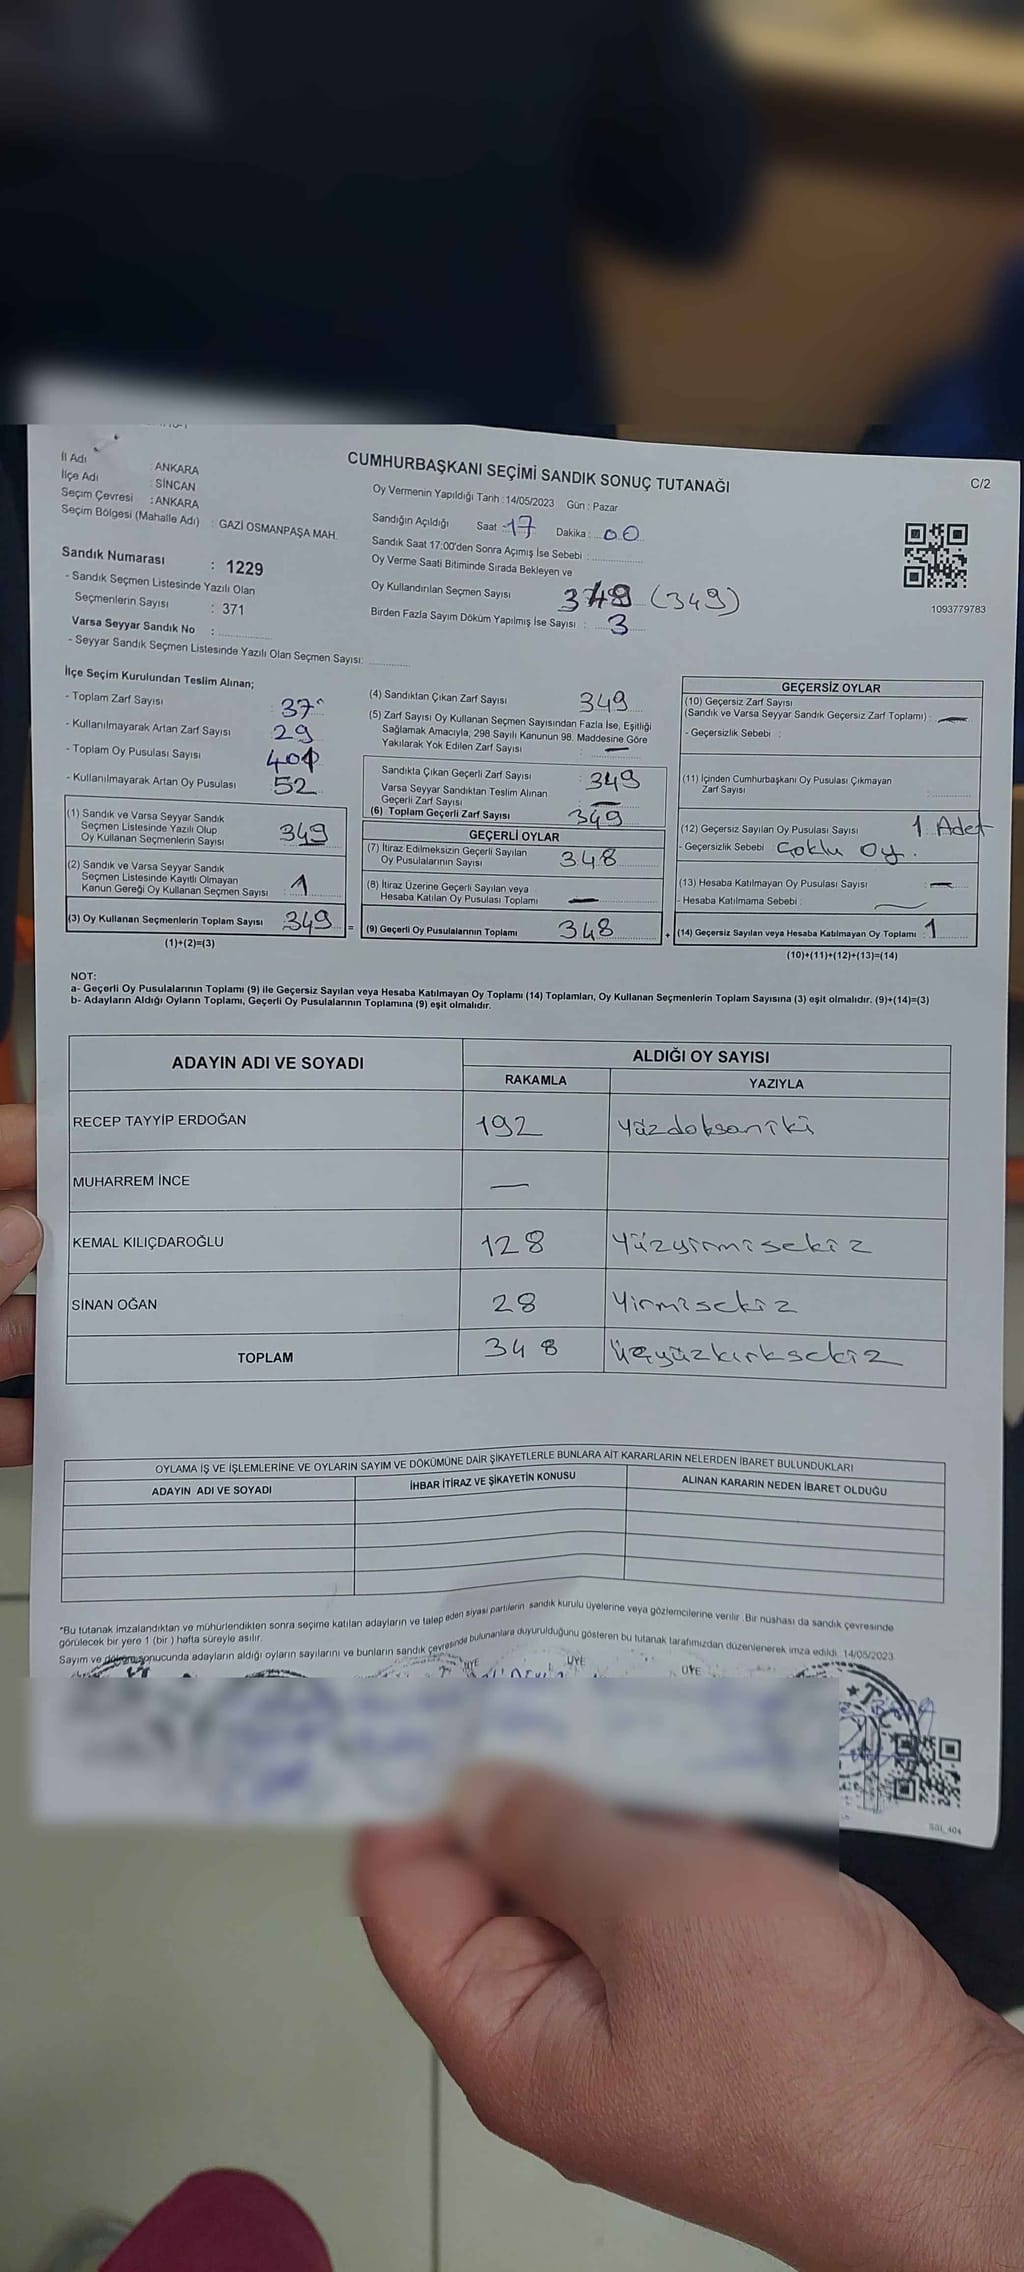 CUMHURBAŞKANI SEÇİMİ SANDIK SONUÇ TUTANAĞI
C/2
İl Adı : ANKARA
İlçe Adı : SİNCAN
Seçim Çevresi : ANKARA
Seçim Bölgesi (Mahalle Adı) : GAZİ OSMANPAŞA MAH.
Oy Vermenin Yapıldığı Tarih : 14/05/2023 Gün : Pazar
Sandığın Açıldığı Saat 17 Dakika : 00
Sandık Saat 17:00'den Sonra Açımış İse Sebebi :
Oy Verme Saati Bitiminde Sırada Bekleyen ve
Oy Kullandırılan Seçmen Sayısı (349)
Birden Fazla Sayım Döküm Yapılmış İse Sayısı : 3
1093779783
Sandık Numarası : 1229
- Sandık Seçmen Listesinde Yazılı Olan
Seçmenlerin Sayısı : 371
Varsa Seyyar Sandık No :
- Seyyar Sandık Seçmen Listesinde Yazılı Olan Seçmen Sayısı:
İlçe Seçim Kurulundan Teslim Alınan;
- Toplam Zarf Sayısı
- Kullanılmayarak Artan Zarf Sayısı 29
- Toplam Oy Pusulası Sayısı
- Kullanılmayarak Artan Oy Pusulası 52
(1) Sandık ve Varsa Seyyar Sandık
Seçmen Listesinde Yazılı Olup
Oy Kullanan Seçmenlerin Sayısı 349
(2) Sandık ve Varsa Seyyar Sandık
Seçmen Listesinde Kayıtlı Olmayan
Kanun Gereği Oy Kullanan Seçmen Sayısı : 1
(3) Oy Kullanan Seçmenlerin Toplam Sayısı : 349
(1)+(2)=(3)
(4) Sandıktan Çıkan Zarf Sayısı 349
(5) Zarf Sayısı Oy Kullanan Seçmen Sayısından Fazla İse, Eşitliği
Sağlamak Amacıyla, 298 Sayılı Kanunun 98. Maddesine Göre
Yakılarak Yok Edilen Zarf Sayısı : —
Sandıkta Çıkan Geçerli Zarf Sayısı : 349
Varsa Seyyar Sandıktan Teslim Alınan
Geçerli Zarf Sayısı : —
(6) Toplam Geçerli Zarf Sayısı 349
GEÇERLİ OYLAR
(7) İtiraz Edilmeksizin Geçerli Sayılan
Oy Pusulalarının Sayısı : 348
(8) İtiraz Üzerine Geçerli Sayılan veya
Hesaba Katılan Oy Pusulası Toplamı : —
= (9) Geçerli Oy Pusulalarının Toplamı : 348
GEÇERSİZ OYLAR
(10) Geçersiz Zarf Sayısı
(Sandık ve Varsa Seyyar Sandık Geçersiz Zarf Toplamı) : —
- Geçersizlik Sebebi :
(11) İçinden Cumhurbaşkanı Oy Pusulası Çıkmayan
Zarf Sayısı :
(12) Geçersiz Sayılan Oy Pusulası Sayısı : 1 Adet
- Geçersizlik Sebebi Çoklu Oy.
(13) Hesaba Katılmayan Oy Pusulası Sayısı : —
- Hesaba Katılmama Sebebi : —
+ (14) Geçersiz Sayılan veya Hesaba Katılmayan Oy Toplamı : 1
(10)+(11)+(12)+(13)=(14)
NOT:
a- Geçerli Oy Pusulalarının Toplamı (9) ile Geçersiz Sayılan veya Hesaba Katılmayan Oy Toplamı (14) Toplamları, Oy Kullanan Seçmenlerin Toplam Sayısına (3) eşit olmalıdır. (9)+(14)=(3)
b- Adayların Aldığı Oyların Toplamı, Geçerli Oy Pusulalarının Toplamına (9) eşit olmalıdır.
ADAYIN ADI VE SOYADI ALDIĞI OY SAYISI
RAKAMLA YAZIYLA
RECEP TAYYİP ERDOĞAN 192 Yüzdoksaniki
MUHARREM İNCE —
KEMAL KILIÇDAROĞLU 128 Yüzyirmisekiz
SİNAN OĞAN 28 Yirmisekiz
TOPLAM 348 Üçyüzkırksekiz
OYLAMA İŞ VE İŞLEMLERİNE VE OYLARIN SAYIM VE DÖKÜMÜNE DAİR ŞİKAYETLERLE BUNLARA AİT KARARLARIN NELERDEN İBARET BULUNDUKLARI
ADAYIN ADI VE SOYADI İHBAR İTİRAZ VE ŞİKAYETİN KONUSU ALINAN KARARIN NEDEN İBARET OLDUĞU
*Bu tutanak imzalandıktan ve mühürlendikten sonra seçime katılan adayların ve talep eden siyasi partilerin sandık kurulu üyelerine veya gözlemcilerine verilir. Bir nüshası da sandık çevresinde
görülecek bir yere 1 (bir) hafta süreyle asılır.
Sayım ve döküm sonucunda adayların aldığı oyların sayılarını ve bunların sandık çevresinde bulunanlara duyurulduğunu gösteren bu tutanak tarafımızdan düzenlenerek imza edildi. 14/05/2023
ÜYE ÜYE ÜYE